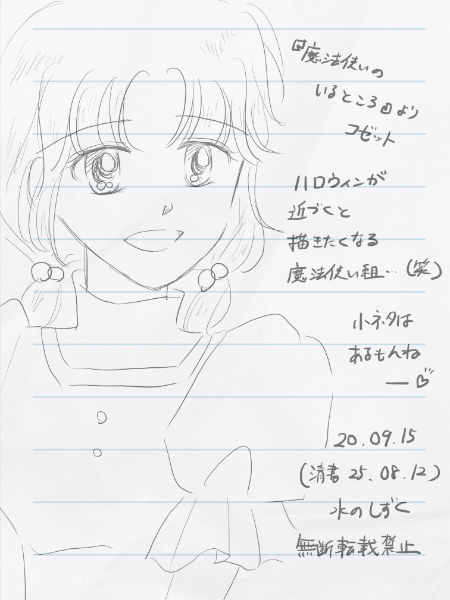 『魔法使いの
いるところ』より
コゼット
ハロウィンが
近づくと
描きたくなる
魔法使い組…(笑)
小ネタは
あるもんね
ー♡
20.09.15
(清書 25.08.12)
水のしずく
無断転載禁止